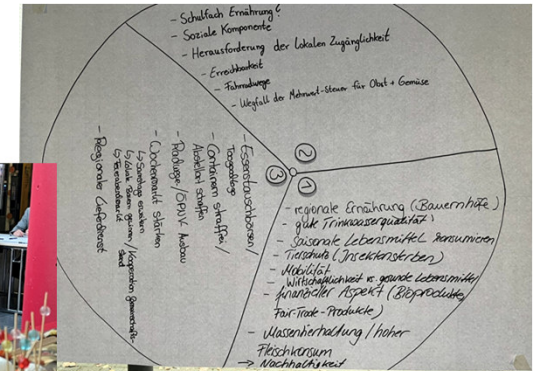 - Schulfach Ernährung?
- Soziale Komponente
- Herausforderung der lokalen Zugänglichkeit
- Erreichbarkeit
- Fahrradwege
- Wegfall der Mehrwert-Steuer für Obst + Gemüse
②
①
- regionale Ernährung (Bauernhöfe)
- gute Trinkwasserqualität!
- Saisonale Lebensmittel konsumieren
- Tierschutz (Insektensterben)
- Mobilität
- Wirtschaftlichkeit vs. gesunde Lebensmittel
- finanzieller Aspekt (Bioprodukte,
Fair-Trade-Produkte)
- Massentierhaltung / hoher
Fleischkonsum
→ Nachhaltigkeit
③
- Essenstauschbörsen /
- Containern straffrei /
Abstellort schaffen
- Radwege / ÖPNV Ausbau
- Wochenmarkt stärken
↳ Samstags erweitern
↳ lokale Bauern gewinnen / Kooperation
↳ Feierabendmarkt
- Regionaler Lieferdienst